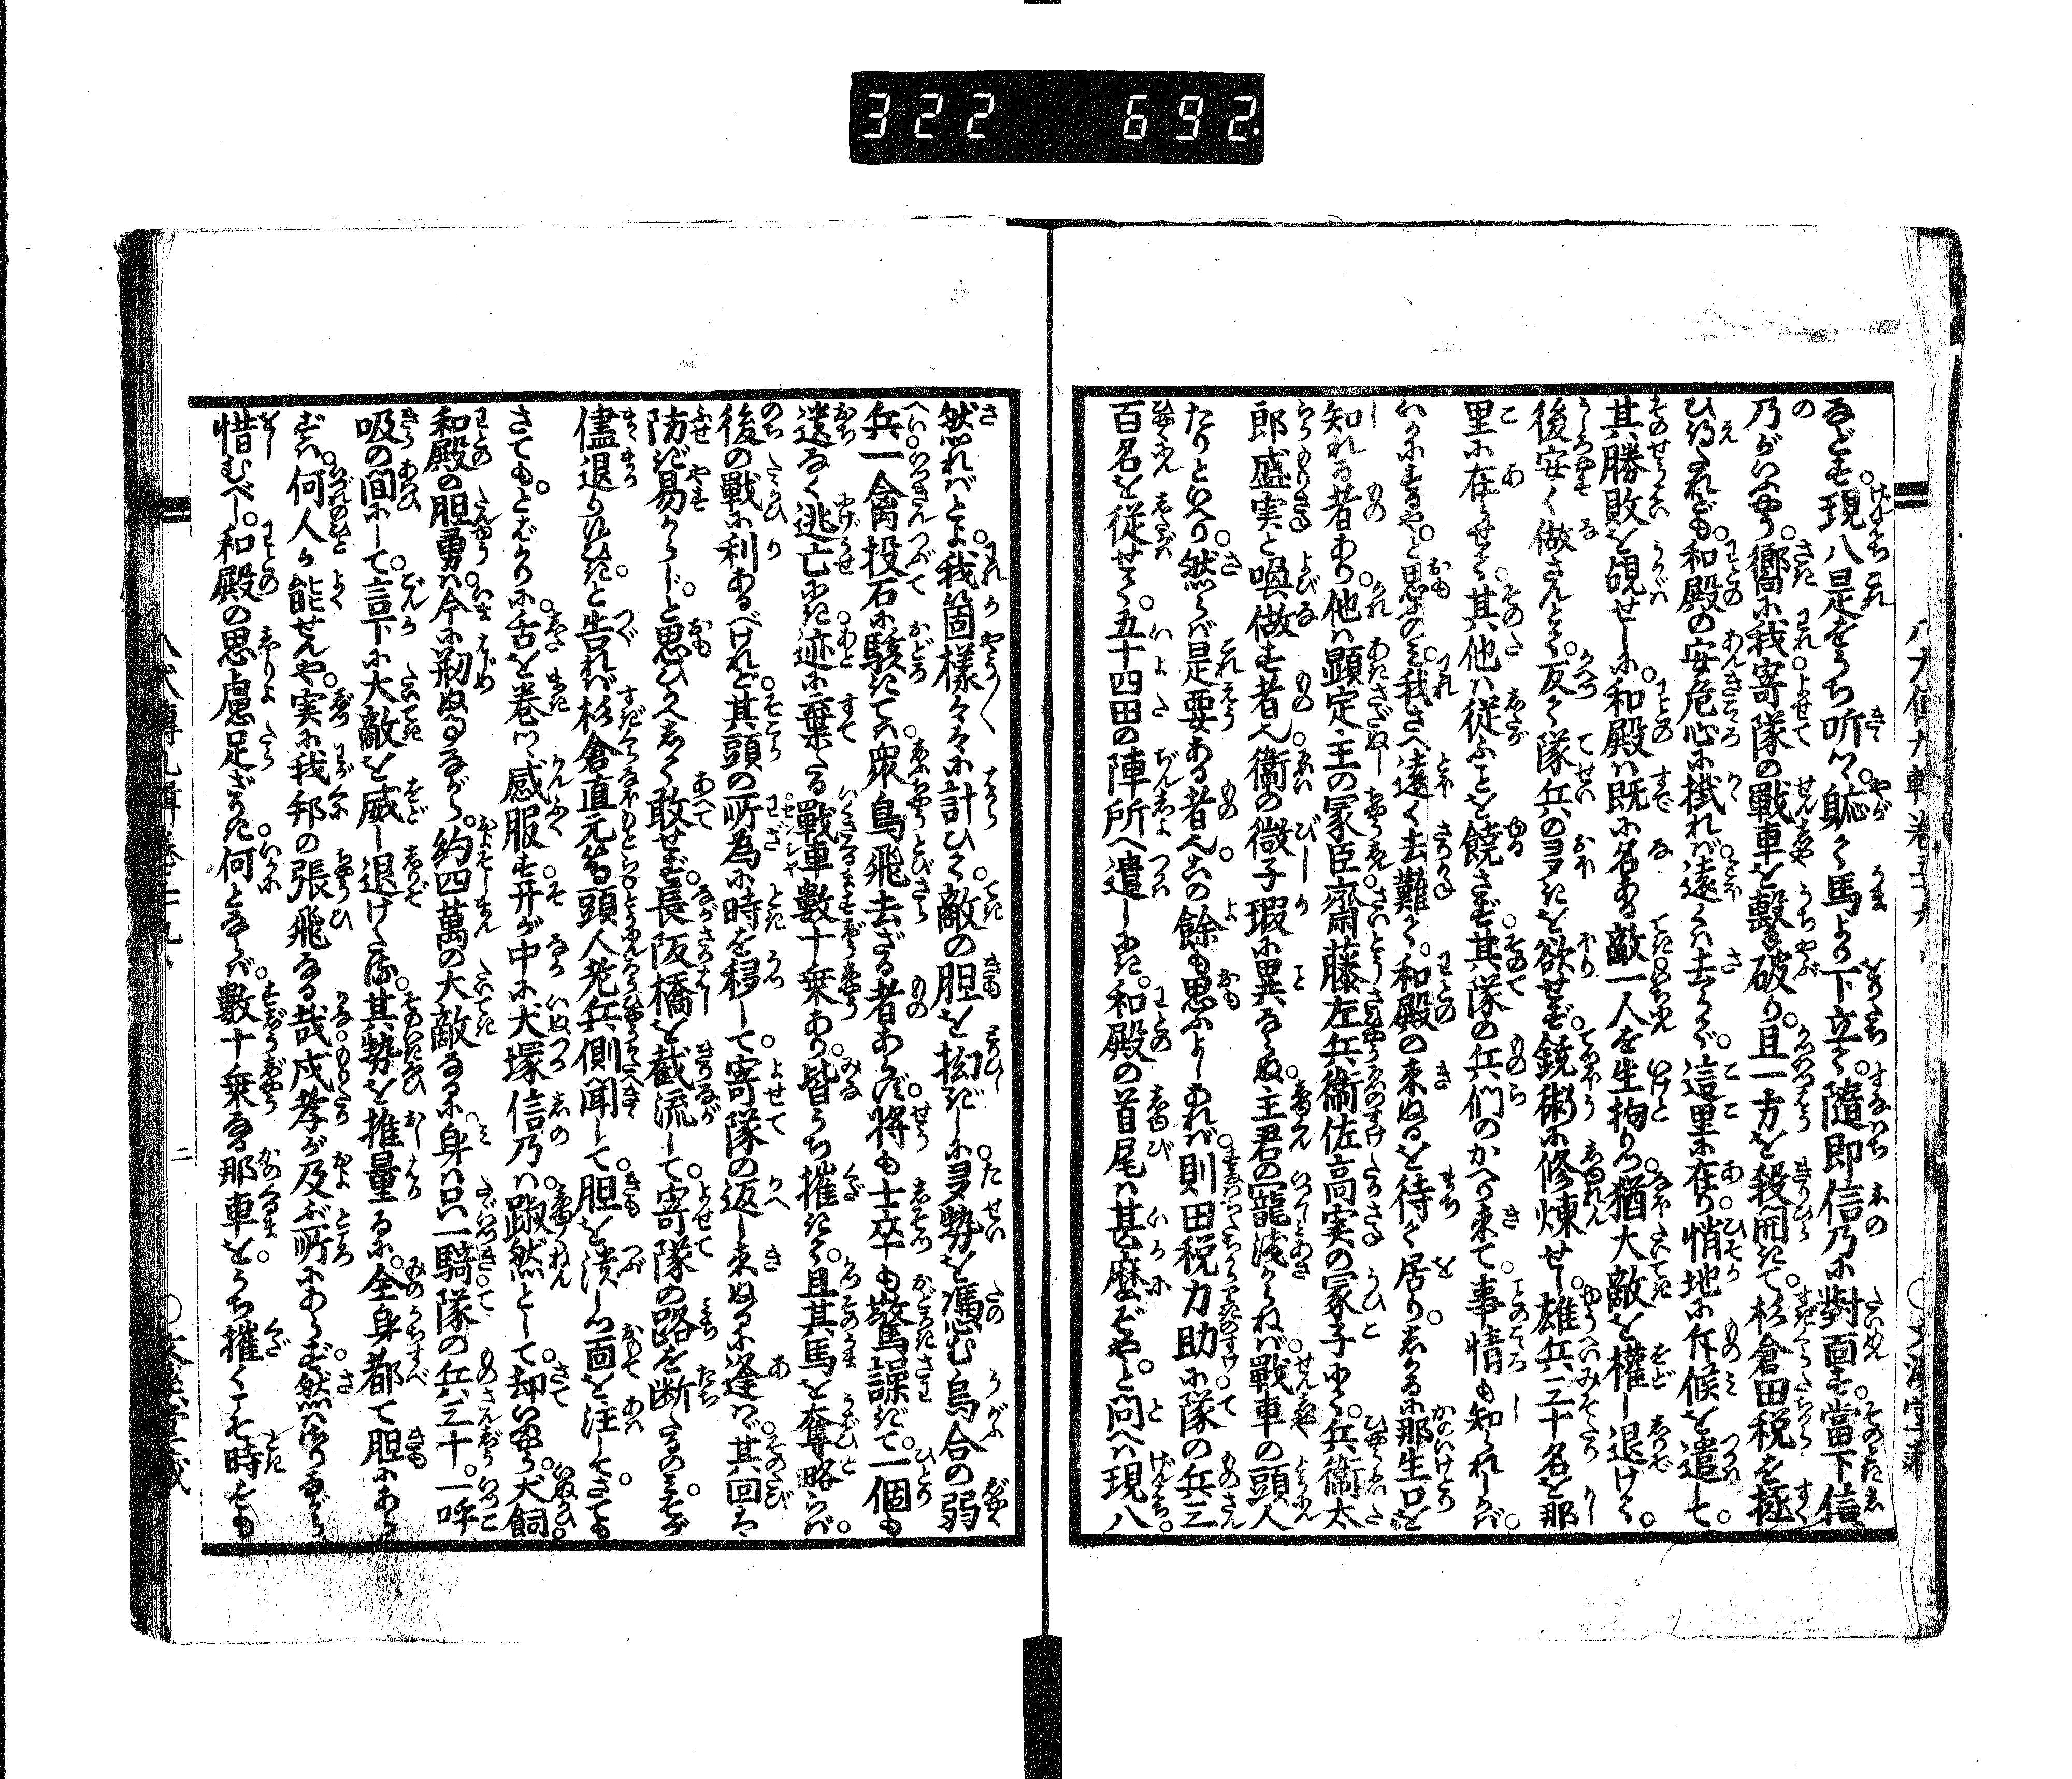 322 692.
なども。現八是をうち听つ。軈て馬より下立て。隨即信乃に對面す。當下信
乃がいふやう。嚮に我寄隊の戰車を毄破り。且一方を殺開きて。杉倉田税を極
ひ得たれども。和殿の安危心に掛れば遠くは去らず。這里に在り悄地に斥候を遣して。
其勝敗を覘せしに。和殿は既に名ある敵一人を生拘りつ。猶大敵を權し退けて。
後安く做さんとて。反て隊兵の多きを欲せず。銃術に修煉せし雄兵三十名を那
里に在らせて。其他は從ふことを饒さず。其隊の兵們のかへり來て。事情も知られしかば。
いかにするやと思ふのみ。我さへ遠く去難く。和殿の來ぬるを待て居り。しかるに那生口を
知れる者あり。他は顕定主の家臣齋藤左兵衞佐高実の冢子にて。兵衞太
郎盛実と喚做す者也。衞の微子瑕に異ならぬ。主君の寵淺からねば。戰車の頭人
たりといへり。然らば是要ある者也。この餘も思ふよしあれば。則田税力助に隊の兵三
百名を從せて。五十四田の陣所へ遣しにき。和殿の首尾は甚麼ぞや。と問へば現八
然ればとよ。我箇樣々々に計ひて。敵の胆を拗ぎしに。多勢を憑む烏合の弱
兵。一禽投石に駭きては。衆鳥飛去ざる者あらず。將も士卒も驚譟ぎて。一個も
遺なく逃亡にき。迹に棄たる戰車數十乗あり。皆うち摧きて。且其馬を奪略らば。
後の戰に利あるべけれど。其頭の所為に時を移して。寄隊の返し來ぬるに逢はゞ。其回は
防ぎ易からじ。と思ひかへして敢せず。長阪橋を截流して。寄隊の路を断たるのみ。その
儘退りにき。と告れば杉倉直元等。頭人老兵側聞して。胆を潰しつ面を注して。さても
さても。とばかりに舌を卷つゝ感服す。开が中に犬塚信乃は。蹴然として。却いふやう。犬飼
和殿の胆勇は。今に刱めぬ事ながら。約四萬の大敵なるに。身は只一騎隊の兵三十。一呼
吸の間にして。言下に大敵を威し退けたる。其勢を推量るに。全身都て胆にあら
ずは。何人か能せんや。実に我邦の張飛なる哉。戌孝が及ぶ所にあらず。然はありながら
惜むべし。和殿の思慮足ざりき。何となれば。數十乗なる那車を。うち摧くこそ時をも
二